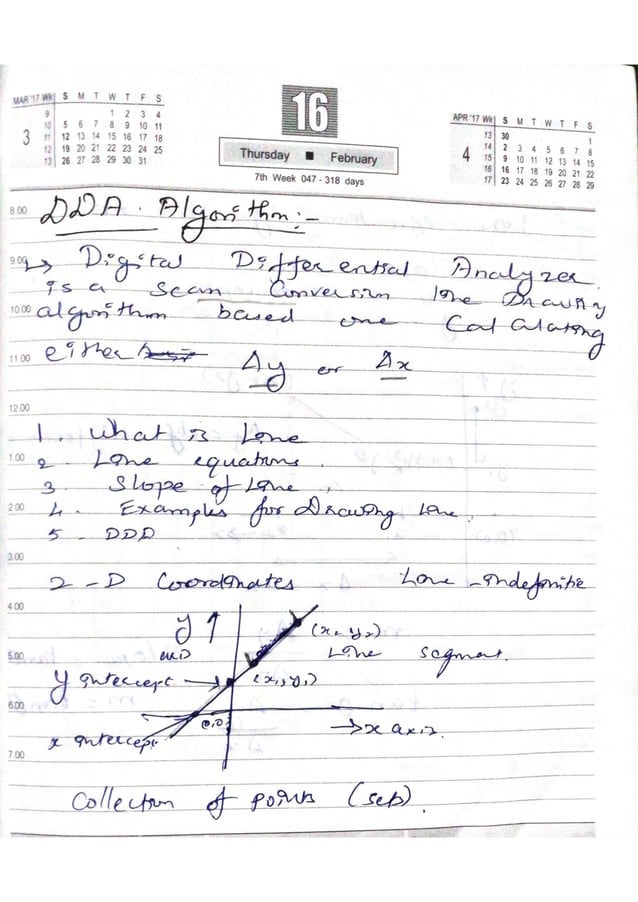 MAR '17 Wk S M T W T F S
9 1 2 3 4
10 5 6 7 8 9 10 11
3 11 12 13 14 15 16 17 18
12 19 20 21 22 23 24 25
13 26 27 28 29 30 31
16
Thursday ■ February
7th Week 047 - 318 days
APR '17 Wk S M T W T F S
13 30 1
14 2 3 4 5 6 7 8
4 15 9 10 11 12 13 14 15
16 16 17 18 19 20 21 22
17 23 24 25 26 27 28 29
8.00 DDA. Algorithm:-
9.00 ↳ Digital Differential Analyzer
is a Scan Conversion line Drawing
10.00 algorithm based one Calculating
11.00 either Δy or Δx
12.00
1. What is Line
1.00 2. Line equations.
3. Slope of Line,
2.00 4. Examples for Drawing Line.
5- DDD
3.00
2-D Coordinates Line - indefinite
4.00
y ↑ (x₂ y₂)
axis Line segment.
5.00
y intercept → (x₁, y₁)
6.00 0,0 → x axis.
x intercept
7.00
Collection of points (set).